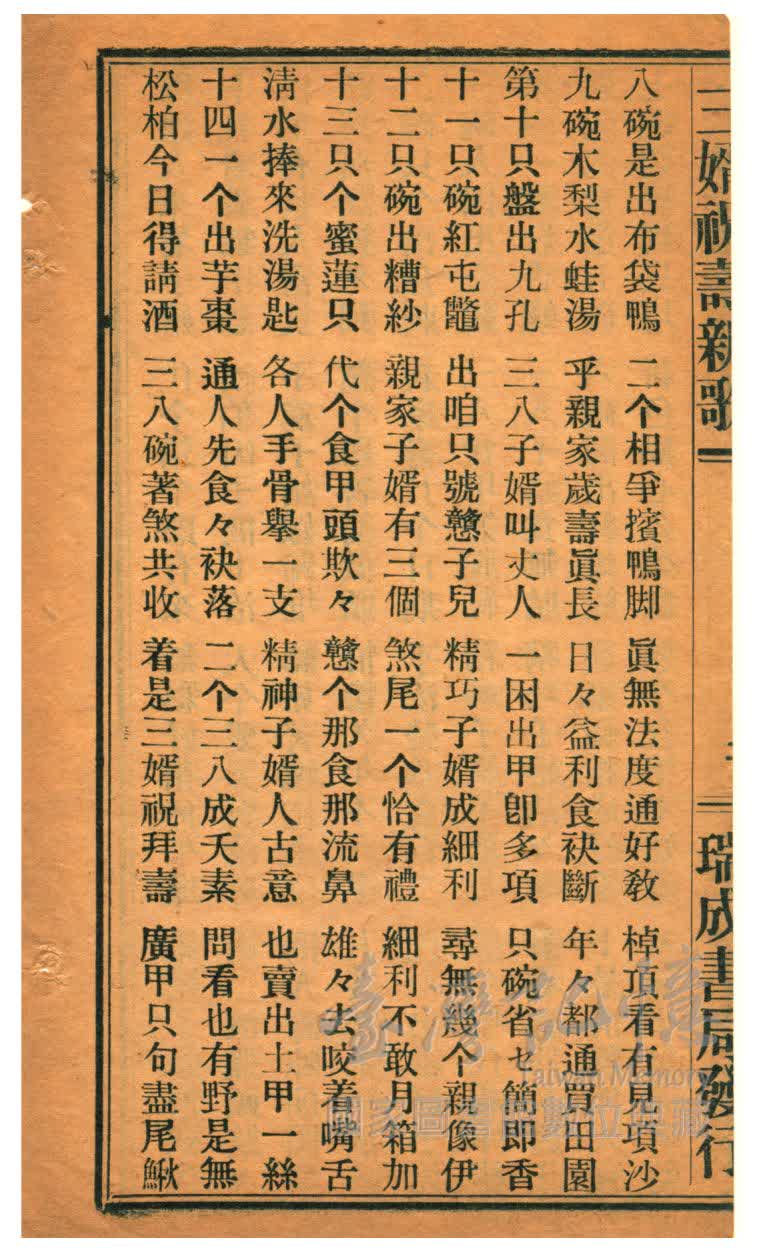 三婿祝壽新歌
瑞成書局發行
八碗是出布袋鴨 二个相爭擯鴨脚 眞無法度通好敎 棹頂看有見項沙
九碗木梨水蛙湯 乎親家歲壽眞長 日々益利食袂斷 年々都通買田園
第十只盤出九孔 三八子婿叫丈人 一困出甲卽多項 只碗省七簡即香
十一只碗紅屯鼈 出咱只號戇子兒 精巧子婿成細利 尋無幾个親像伊
十二只碗出糟紗 親家子婿有三個 煞尾一个恰有禮 細利不敢月箱加
十三只个蜜蓮只 代个食甲頭欺々 戇个那食那流鼻 雄々去咬着嘴舌
淸水捧來洗湯匙 各人手骨擧一支 精神子婿人古意 也賣出土甲一絲
十四一个出芋棗 通人先食々袂落 二个三八成夭素 問看也有野是無
松柏今日得請酒 三八碗著煞共收 着是三婿祝拜壽 廣甲只句盡尾鰍
臺灣記憶
Taiwan Memory
國家圖書館數位典藏